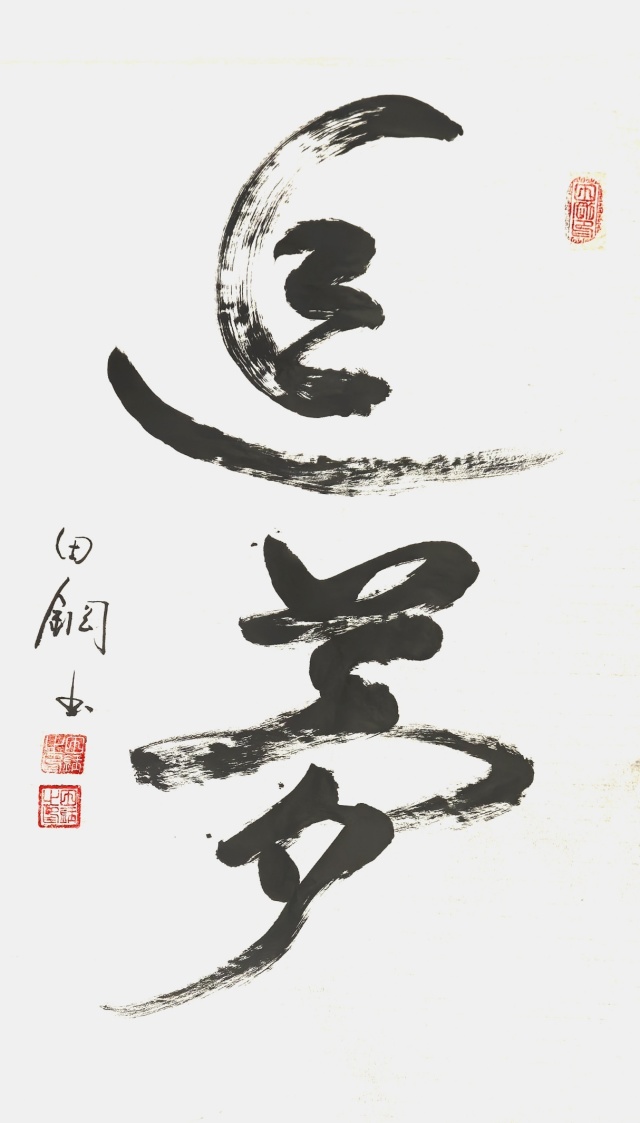 追夢
田鋼书